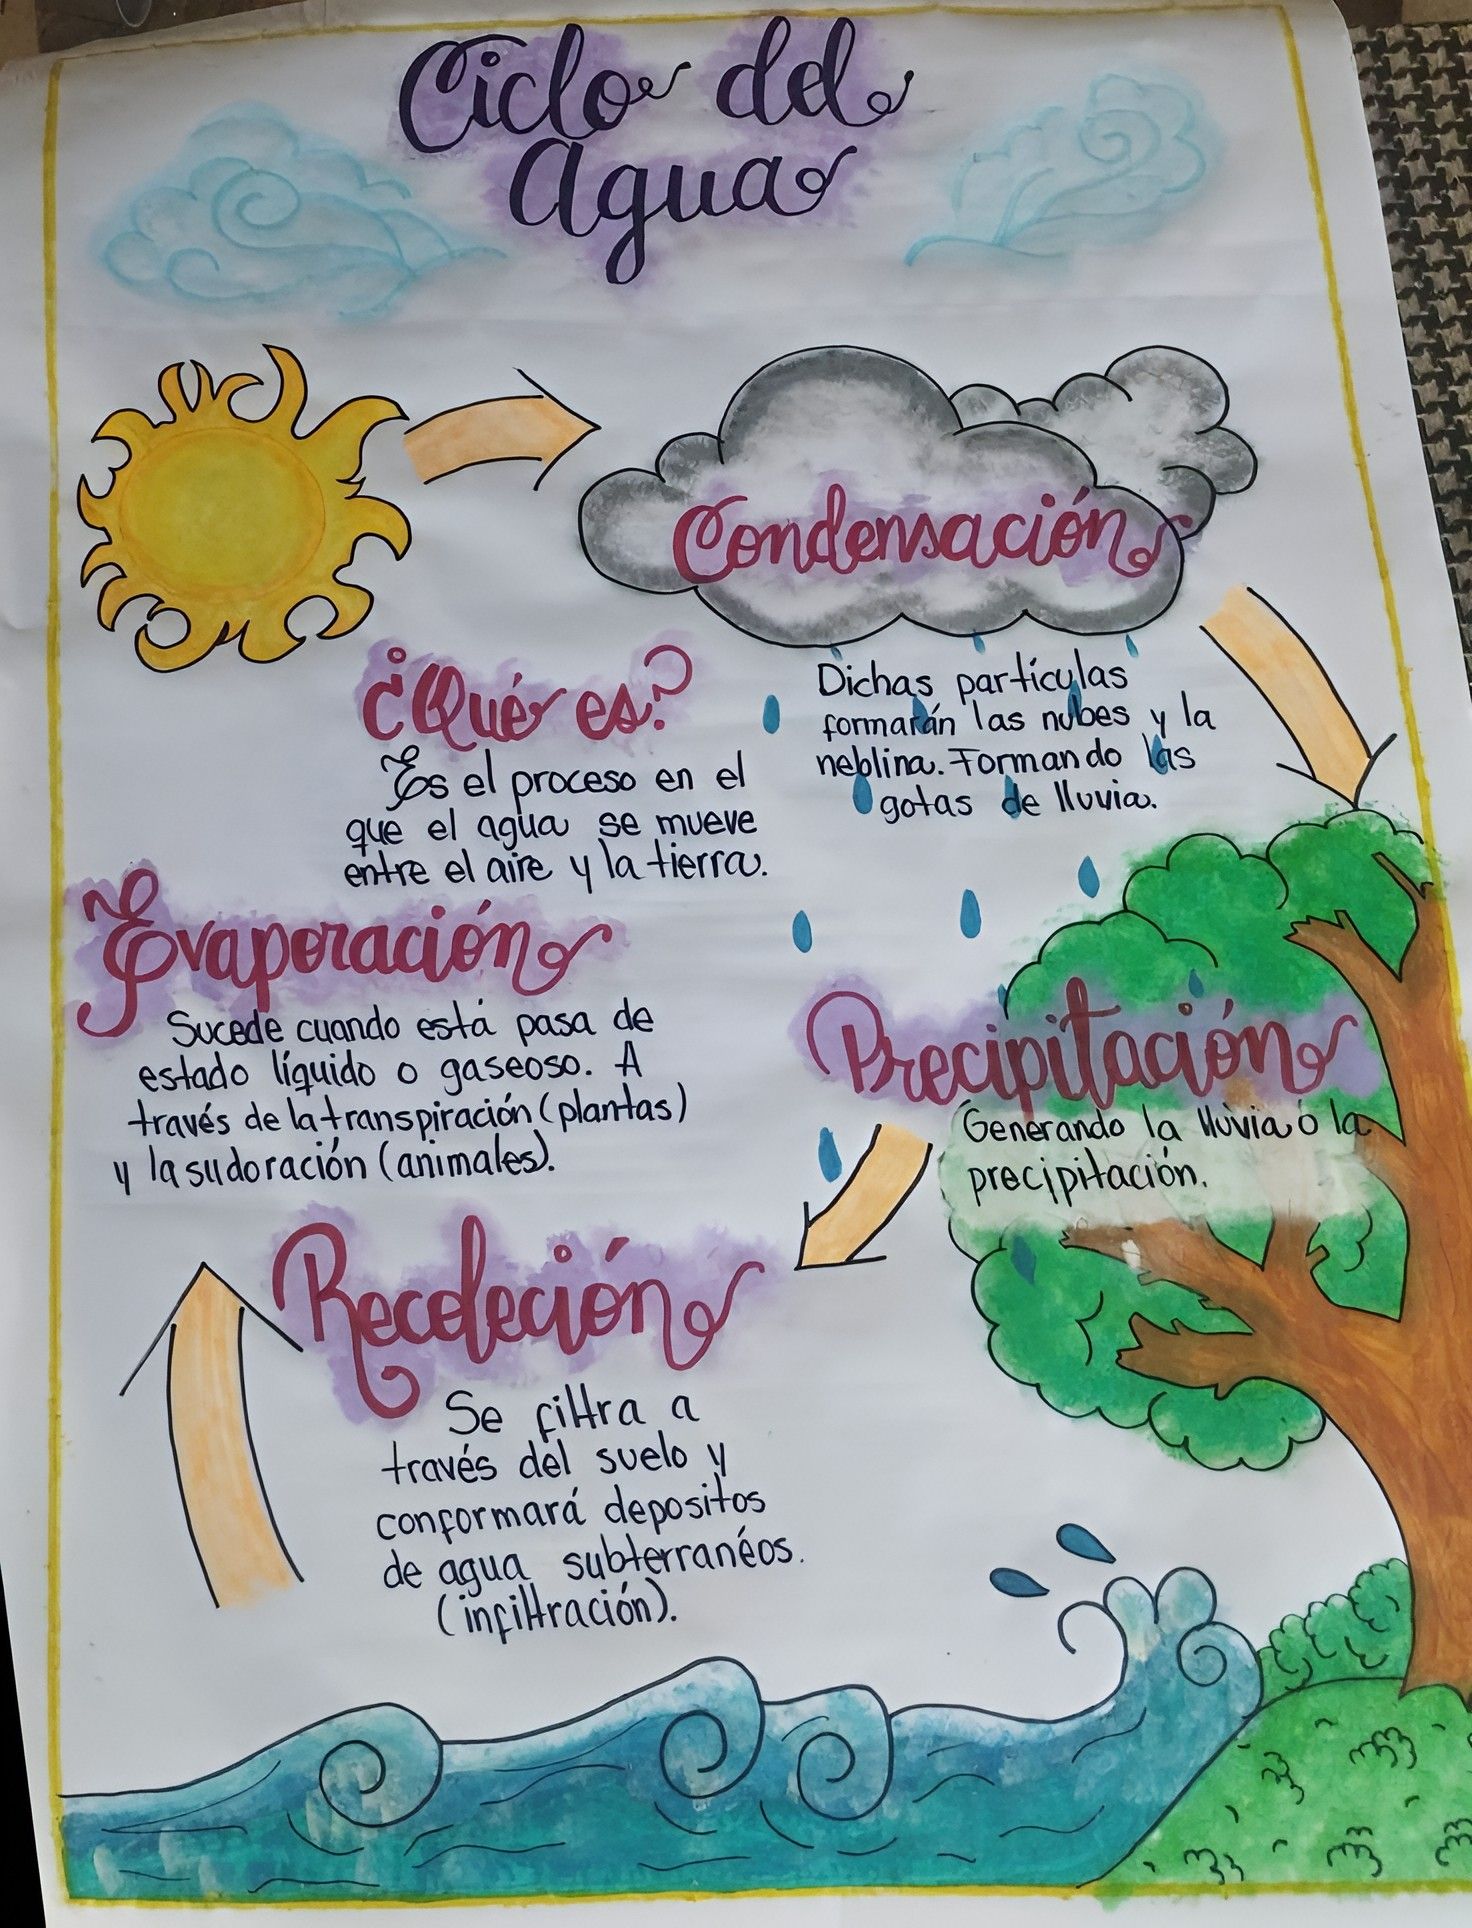 Ciclo del
Agua
Condensación
Dichas partículas
formarán las nubes y la
neblina. Formando las
gotas de lluvia.
¿Qué es?
Es el proceso en el
que el agua se mueve
entre el aire y la tierra.
Evaporación
Sucede cuando está pasa de
estado líquido o gaseoso. A
través de la transpiración (plantas)
y la sudoración (animales).
Precipitación
Generando la lluvia o la
precipitación.
Recoleción
Se filtra a
través del suelo y
conformará depositos
de agua subterranéos.
(infiltración).